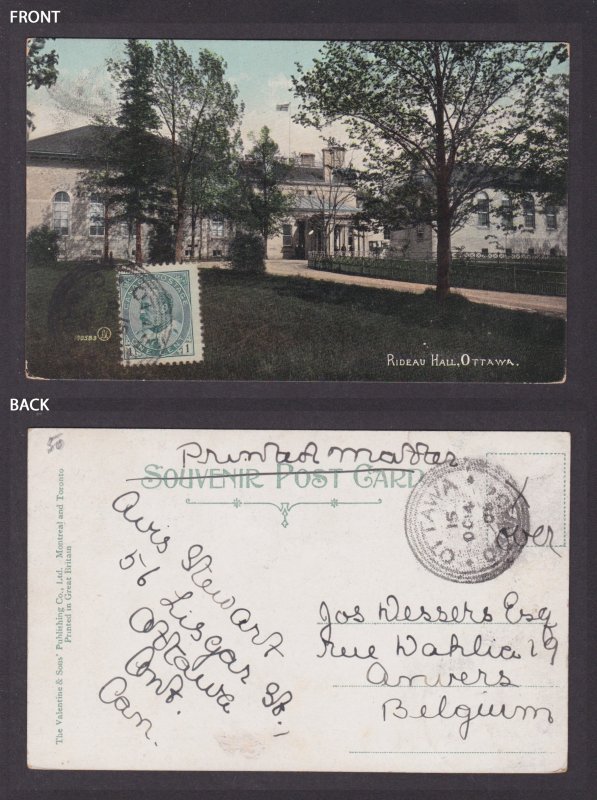 FRONT
1
103583 JV
RIDEAU HALL, OTTAWA.
BACK
50
Printed Matter
SOUVENIR POST CARD
OTTAWA
15
OC 14
X
over
Avis Stewart
56 Lisgar St.,
Ottawa
Ont.
Can.
Jos Wessers Esq
rue Wahlia 29
Anvers
Belgium
The Valentine & Sons' Publishing Co., Ltd. Montreal and Toronto
Printed in Great Britain